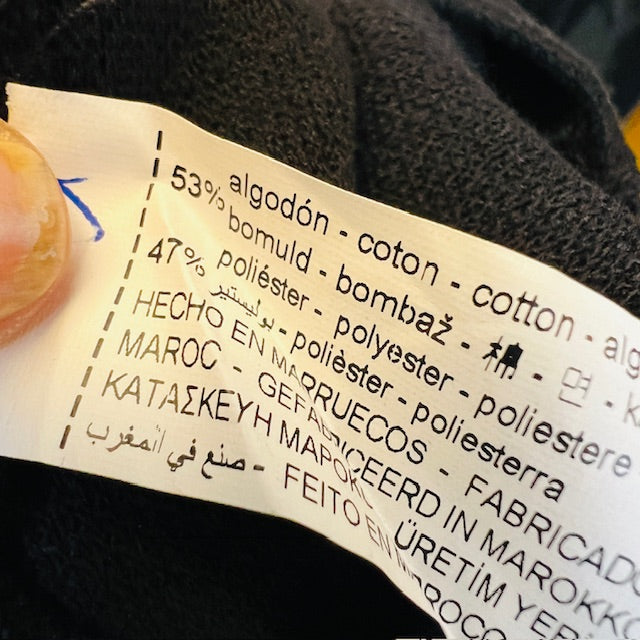 53% algodón - coton - cotton - alg
bomuld - bombaž - 棉 - 면 -
47% poliéster - polyester - poliestere
بوليستير - polièster - poliesterra
HECHO EN MARRUECOS - FABRICADO
MAROC - GEFABRICEERD IN MAROKKO
ΚΑΤΑΣΚΕΥΗ ΜΑΡΟΚ ÜRETİM YER
صنع في المغرب - FEITO EN MARROCO